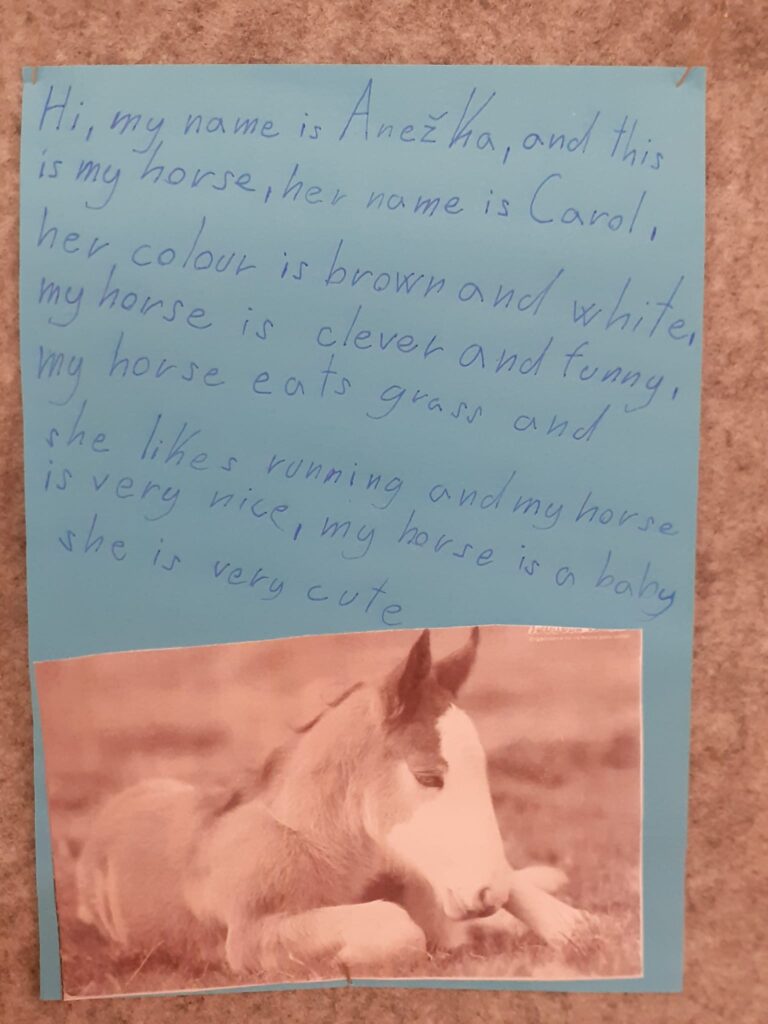 Hi, my name is Anežka, and this
is my horse, her name is Carol,
her colour is brown and white,
my horse is clever and funny,
my horse eats grass and
she likes running and my horse
is very nice, my horse is a baby
she is very cute